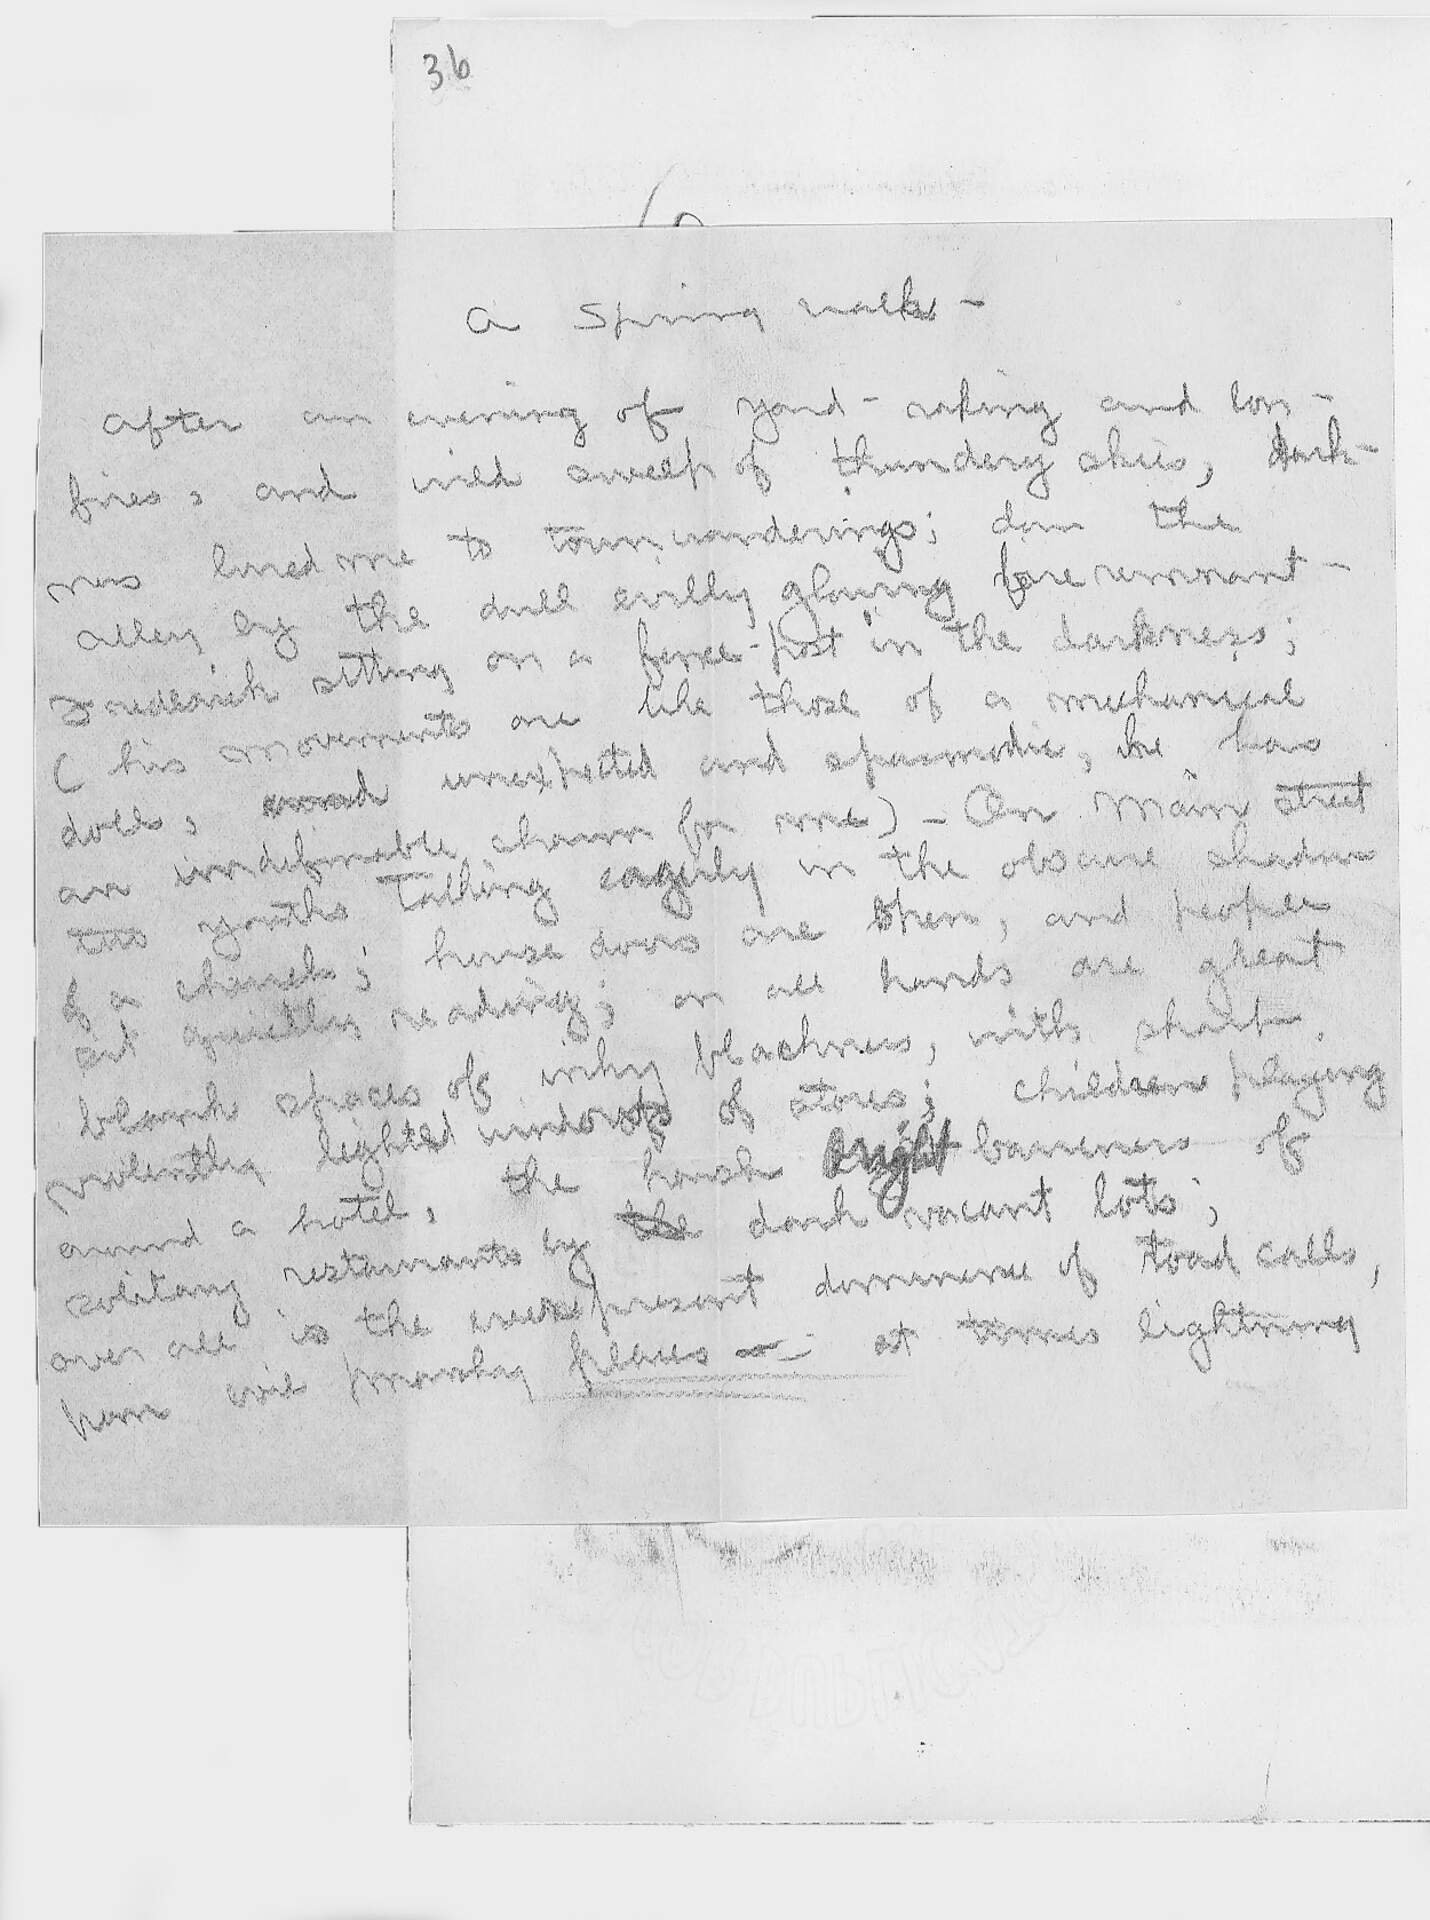 36
A Spring walk -
After an evening of yard-raking and bon-
fires, and wild sweep of thundery skies, dark-
ness lured me to town wanderings; down the
alley by the dull evilly glowing fire remnant -
Frederick sitting on a fence-post in the darkness;
( his movements are like those of a mechanical
doll, unexpected and spasmodic, he has
an indefinable charm for me) - On Main Street
two youths talking eagerly in the obscure shadow
of a church; house doors are open, and people
sit quietly reading; on all hands are great
blank spaces of inky blackness, with sharp,
violently lighted windows of stores; children playing
around a hotel, the harsh bright bareness of
solitary restaurants by the dark vacant lots;
over all is the ever present dominence of toad calls,
from evil marshy places — at times lightning